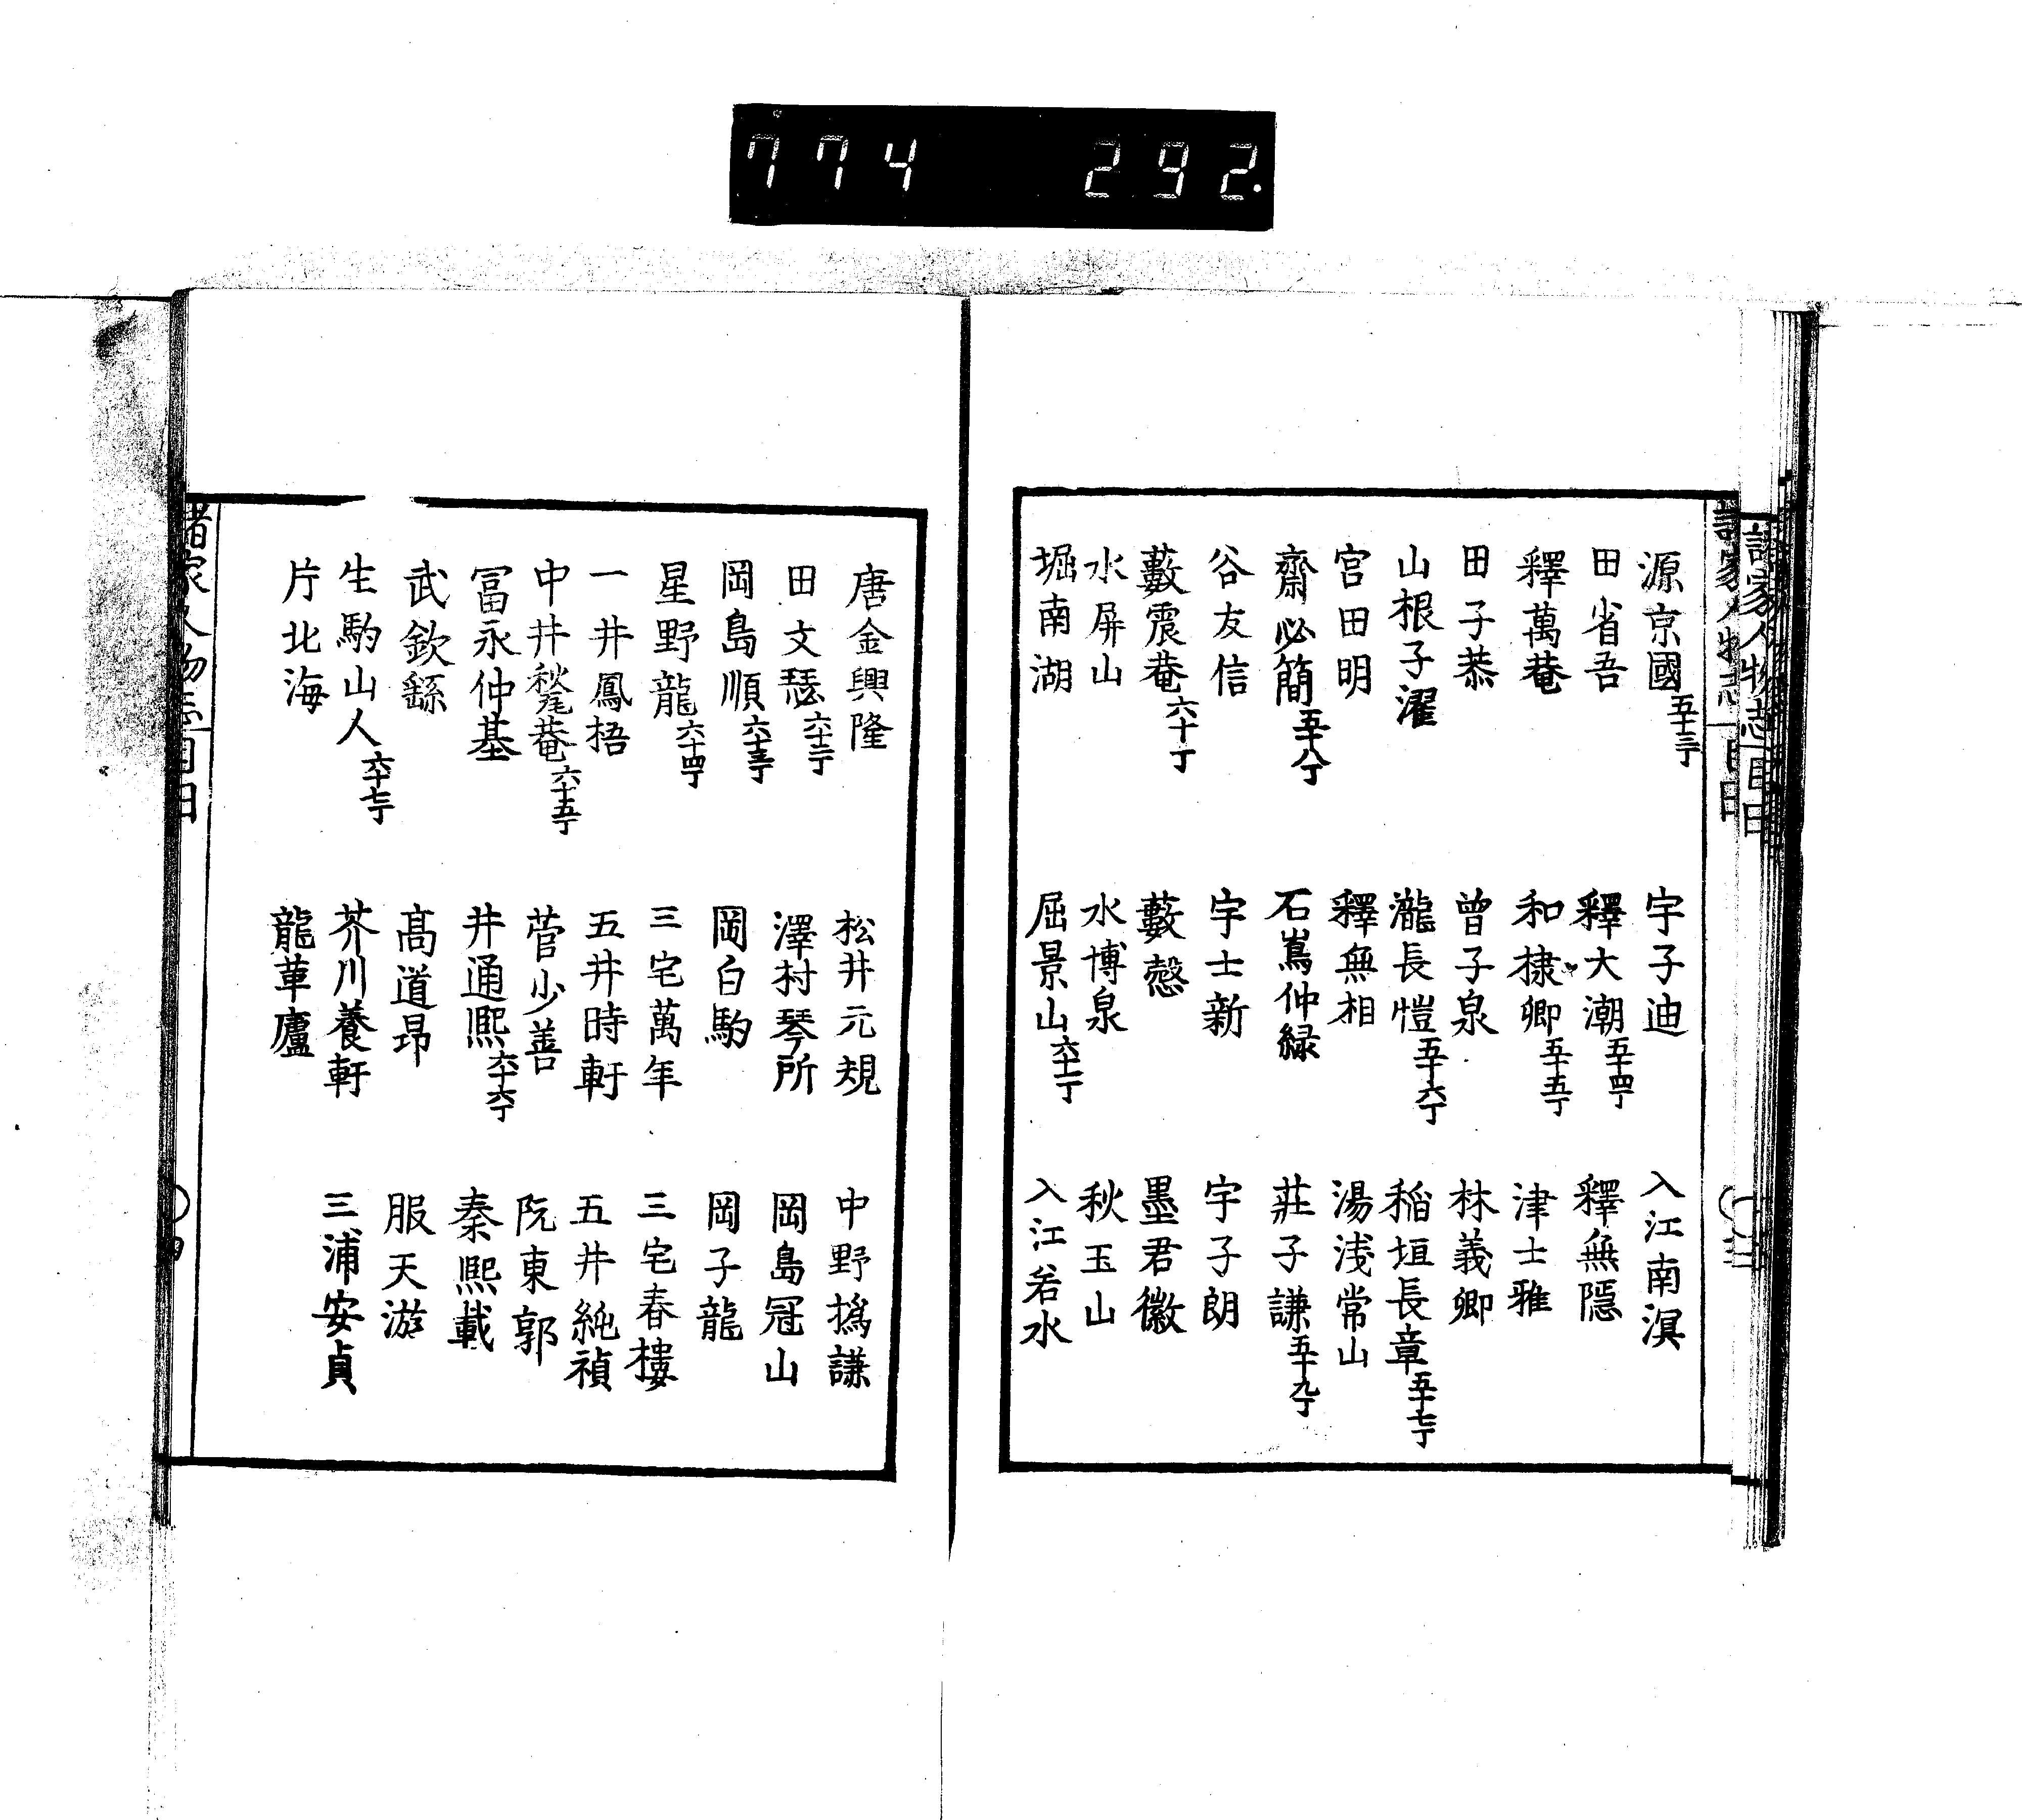 774 292.
諸家人物志 目
源京國五十三丁 宇子迪 入江南溟
田省吾 釋大潮五十四丁 釋無隠
釋萬菴 和棣卿五十五丁 津士雅
田子恭 曾子泉 林義卿
山根子濯 瀧長愷五十六丁 稲垣長章五十七丁
宮田明 釋無相 湯浅常山
齋必簡五十八丁 石嶌仲緑 莊子謙五十九丁
谷友信 宇士新 宇子朗
藪震菴六十丁 藪愨 墨君徽
水屏山 水博泉 秋玉山
堀南湖 屈景山六十一丁 入江若水
唐金興隆 松井元規 中野撝謙
田文瑟六十二丁 澤村琴所 岡島冠山
岡島順六十三丁 岡白駒 岡子龍
星野龍六十四丁 三宅萬年 三宅春樓
一井鳳梧 五井時軒 五井純禎
中井甃菴六十五丁 菅少善 阮東郭
冨永仲基 井通熙六十六丁 秦熙載
武欽繇 髙道昂 服天游
生駒山人六十七丁 芥川養軒 三浦安貞
片北海 龍草廬